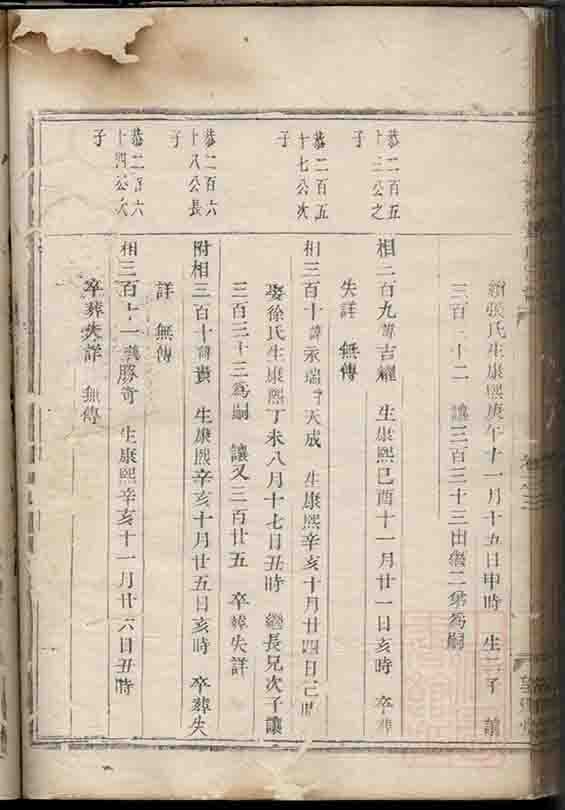 續張氏生康熙庚午十一月十五日申時 生三子 讓
三百二十二 讓三百三十三出繼二弟為嗣
恭二百五
十三公之
子
相三百九諱吉耀 生康熙己酉十一月廿一日亥時 卒葬
失詳 無傳
恭二百五
十七公次
子
相三百十諱永瑞字天成 生康熙辛亥十月廿四日巳時
娶徐氏生康熙丁未八月十七日丑時 繼長兄次子讓
三百三十三為嗣 讓又三百廿五 卒葬失詳
恭二百六
十八公長
子
附相三百十諱貴 生康熙辛亥十月廿五日亥時 卒葬失
詳 無傳
恭二百六
十四公次
子
相三百十一諱勝奇 生康熙辛亥十一月廿六日丑時
卒葬失詳 無傳